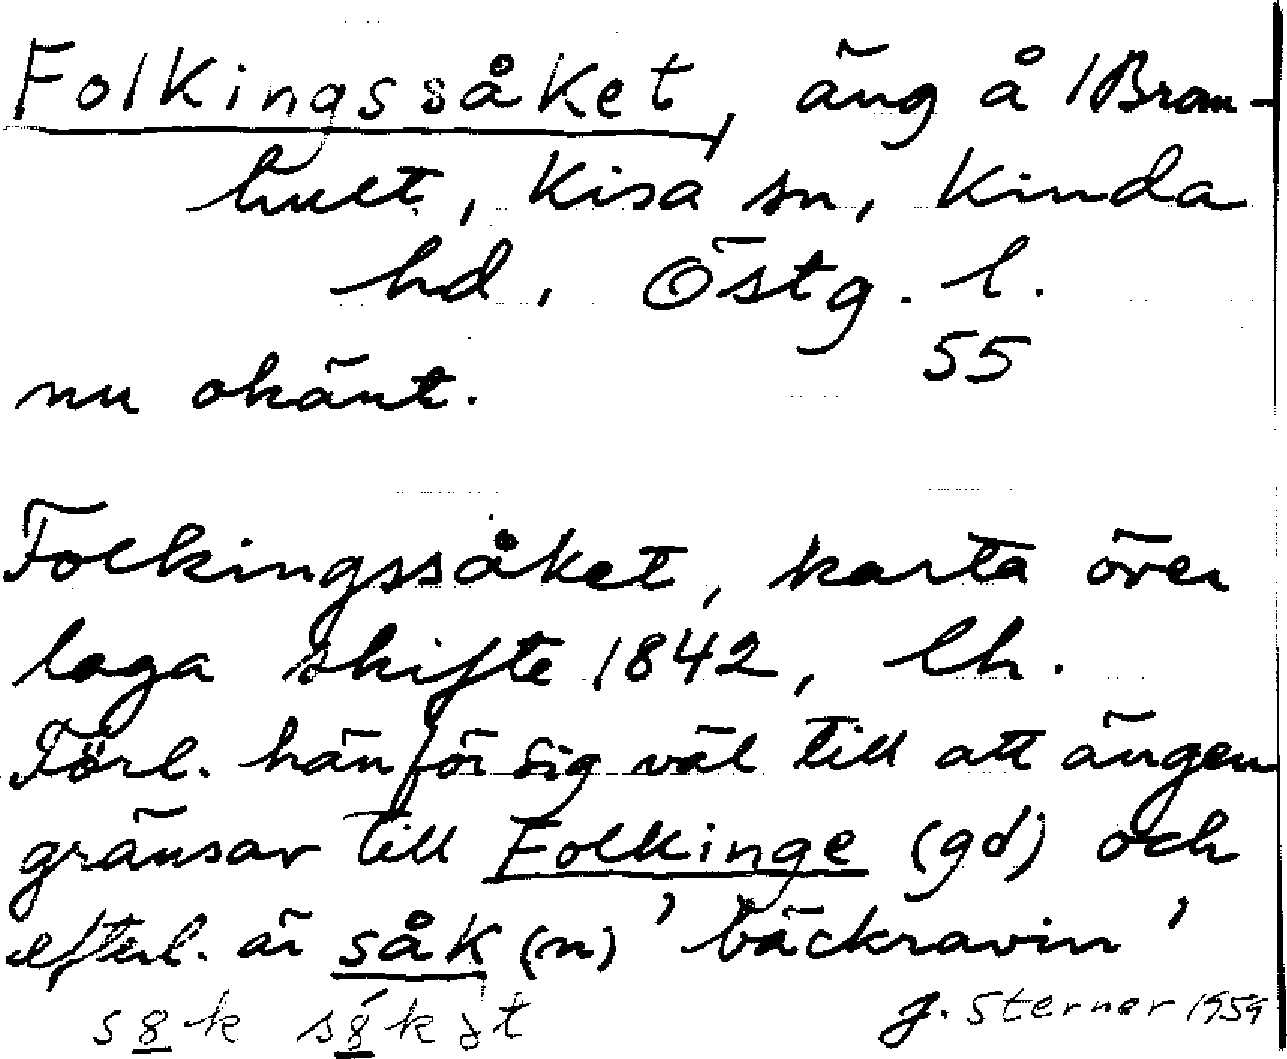 Folkingssåket, äng å /Bram-
hult, Kisa sn, Kinda
hd, Östg. l.
55
nu okänt.
Folkingssåket, karta över
laga skifte 1842, lh.
Förl. hänför sig väl till att ängen
gränsar till Folkinge (gd) och
efterl. är såk (n) 'bäckravin'
J. Sterner 1959